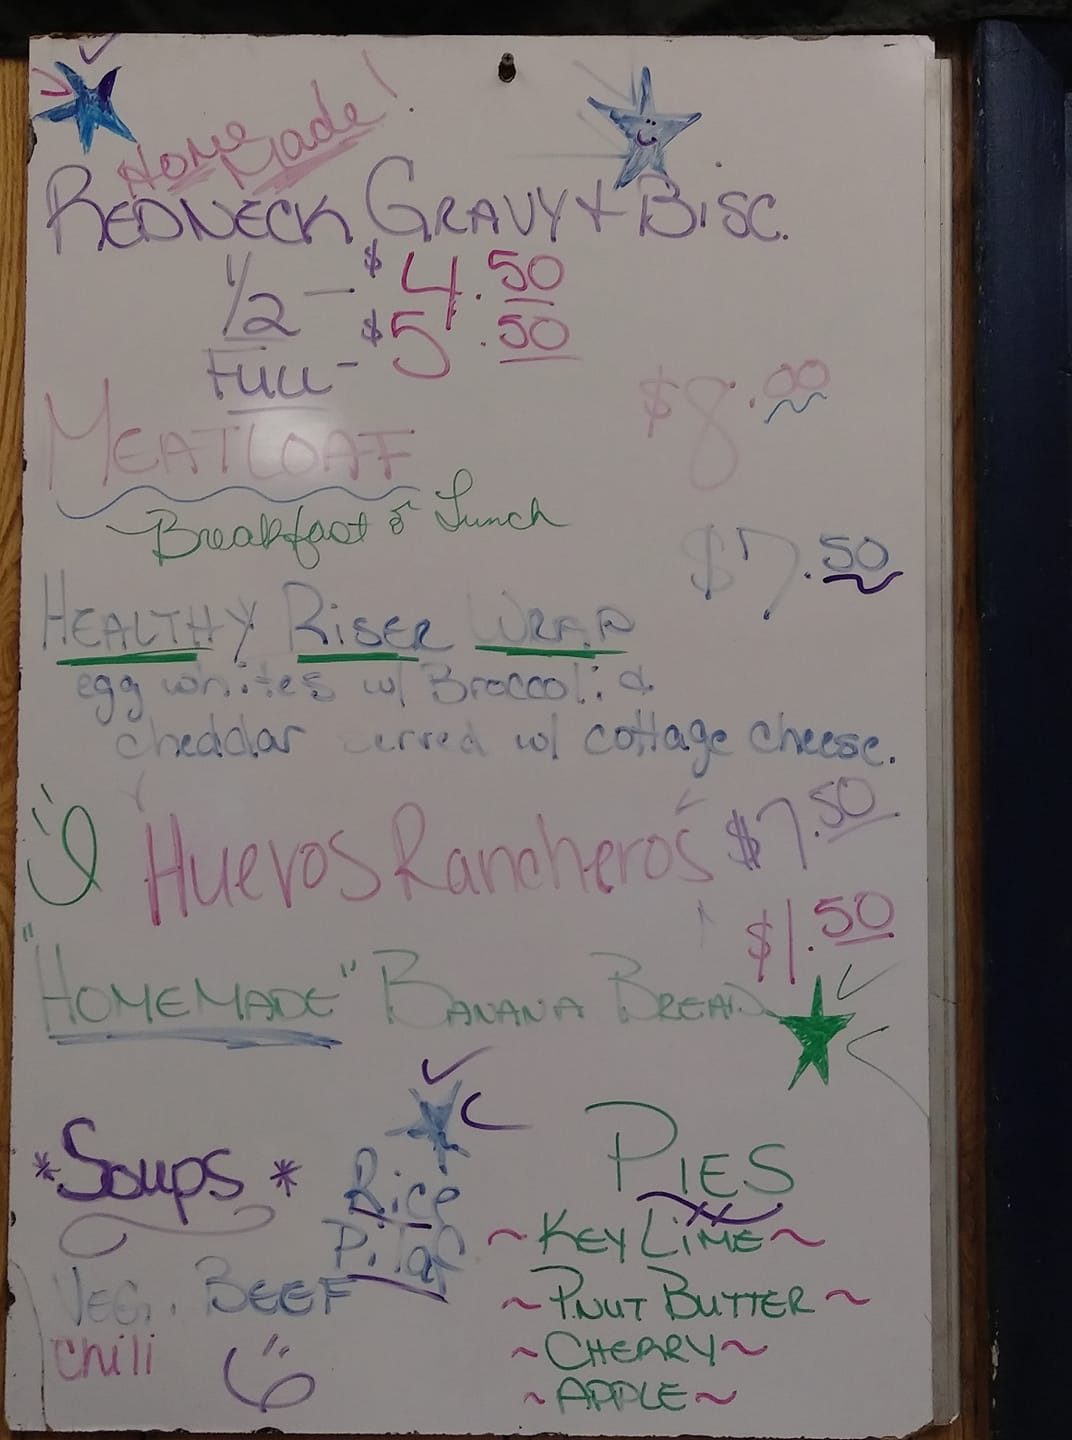 Homemade!
REDNECK GRAVY + BISC.
1/2 - $4.50
FULL - $5.50
MEATLOAF $8.00
Breakfast & Lunch
HEALTHY RISER WRAP $7.50
egg whites w/ Broccoli &
cheddar served w/ cottage cheese.
Huevos Rancheros $7.50
"HOMEMADE" BANANA BREAD $1.50
*Soups*
VEG. BEEF
Chili
Rice
Pilaf
PIES
~KEY LIME~
~PNUT BUTTER~
~CHERRY~
~APPLE~